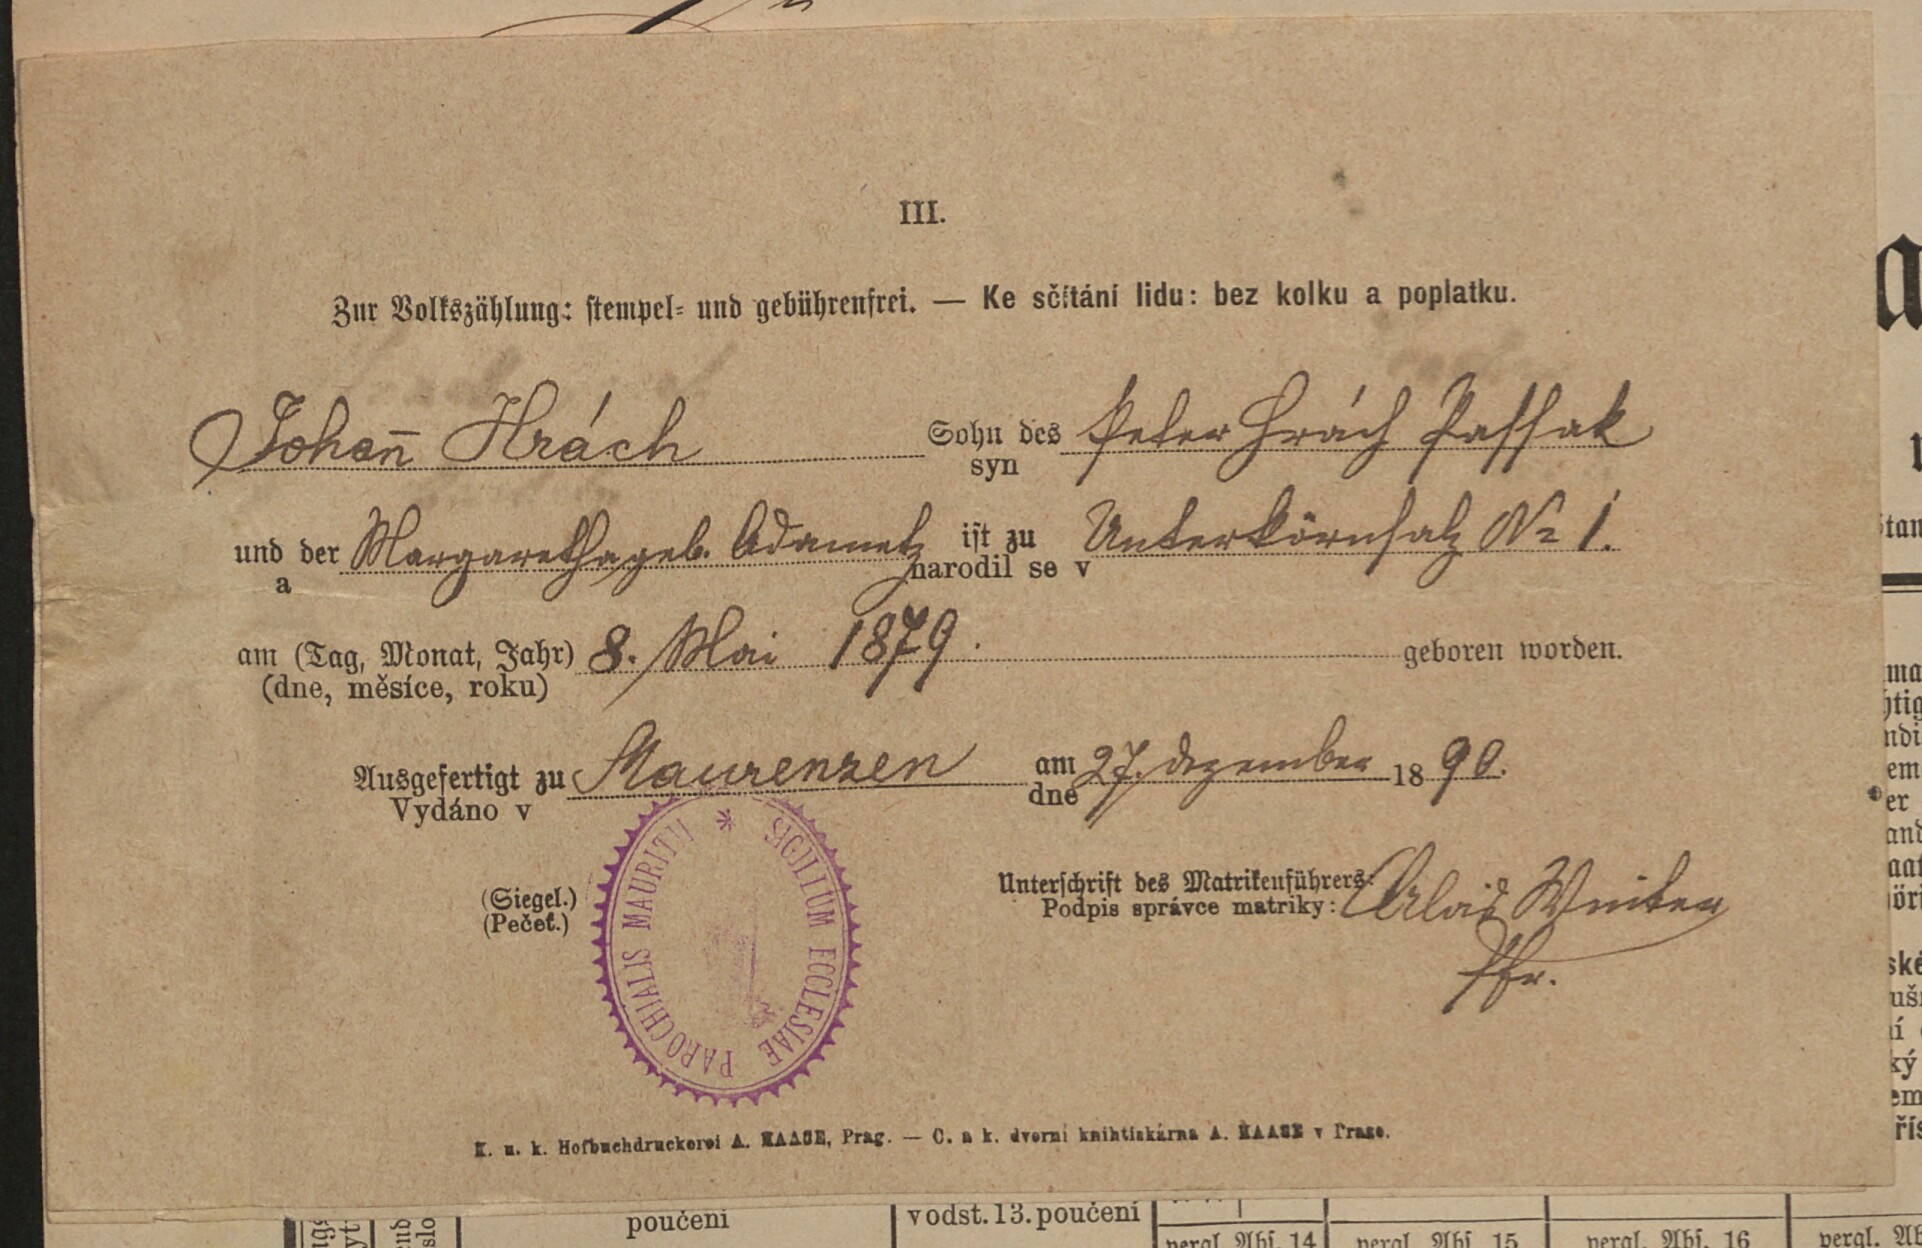 III.
Zur Volkszählung: stempel- und gebührenfrei. — Ke sčítání lidu: bez kolku a poplatku.
Johan̄ Hrách Sohn des Peter Hrách Passak
syn
und der Margaretha geb. Adametz ist zu Unterkörnsalz № 1.
a narodil se v
am (Tag, Monat, Jahr) 8. Mai 1879. geboren worden.
(dne, měsíce, roku)
Ausgefertigt zu Maurenzen am 27. Dezember 1890.
Vydáno v dne
(Siegel.)
(Pečeť.)
SIGILLUM ECCLESIAE PAROCHIALIS MAURITII *
Unterschrift des Matrikenführers: Alois Winter
Podpis správce matriky:
Pfr.
K. u. k. Hofbuchdruckerei A. HAASE, Prag. — C. a k. dvorní knihtiskárna A. HAASE v Praze.
poučení
vodst. 13. poučení
vergl. Abs. 14
vergl. Abs. 15
vergl. Abs. 16